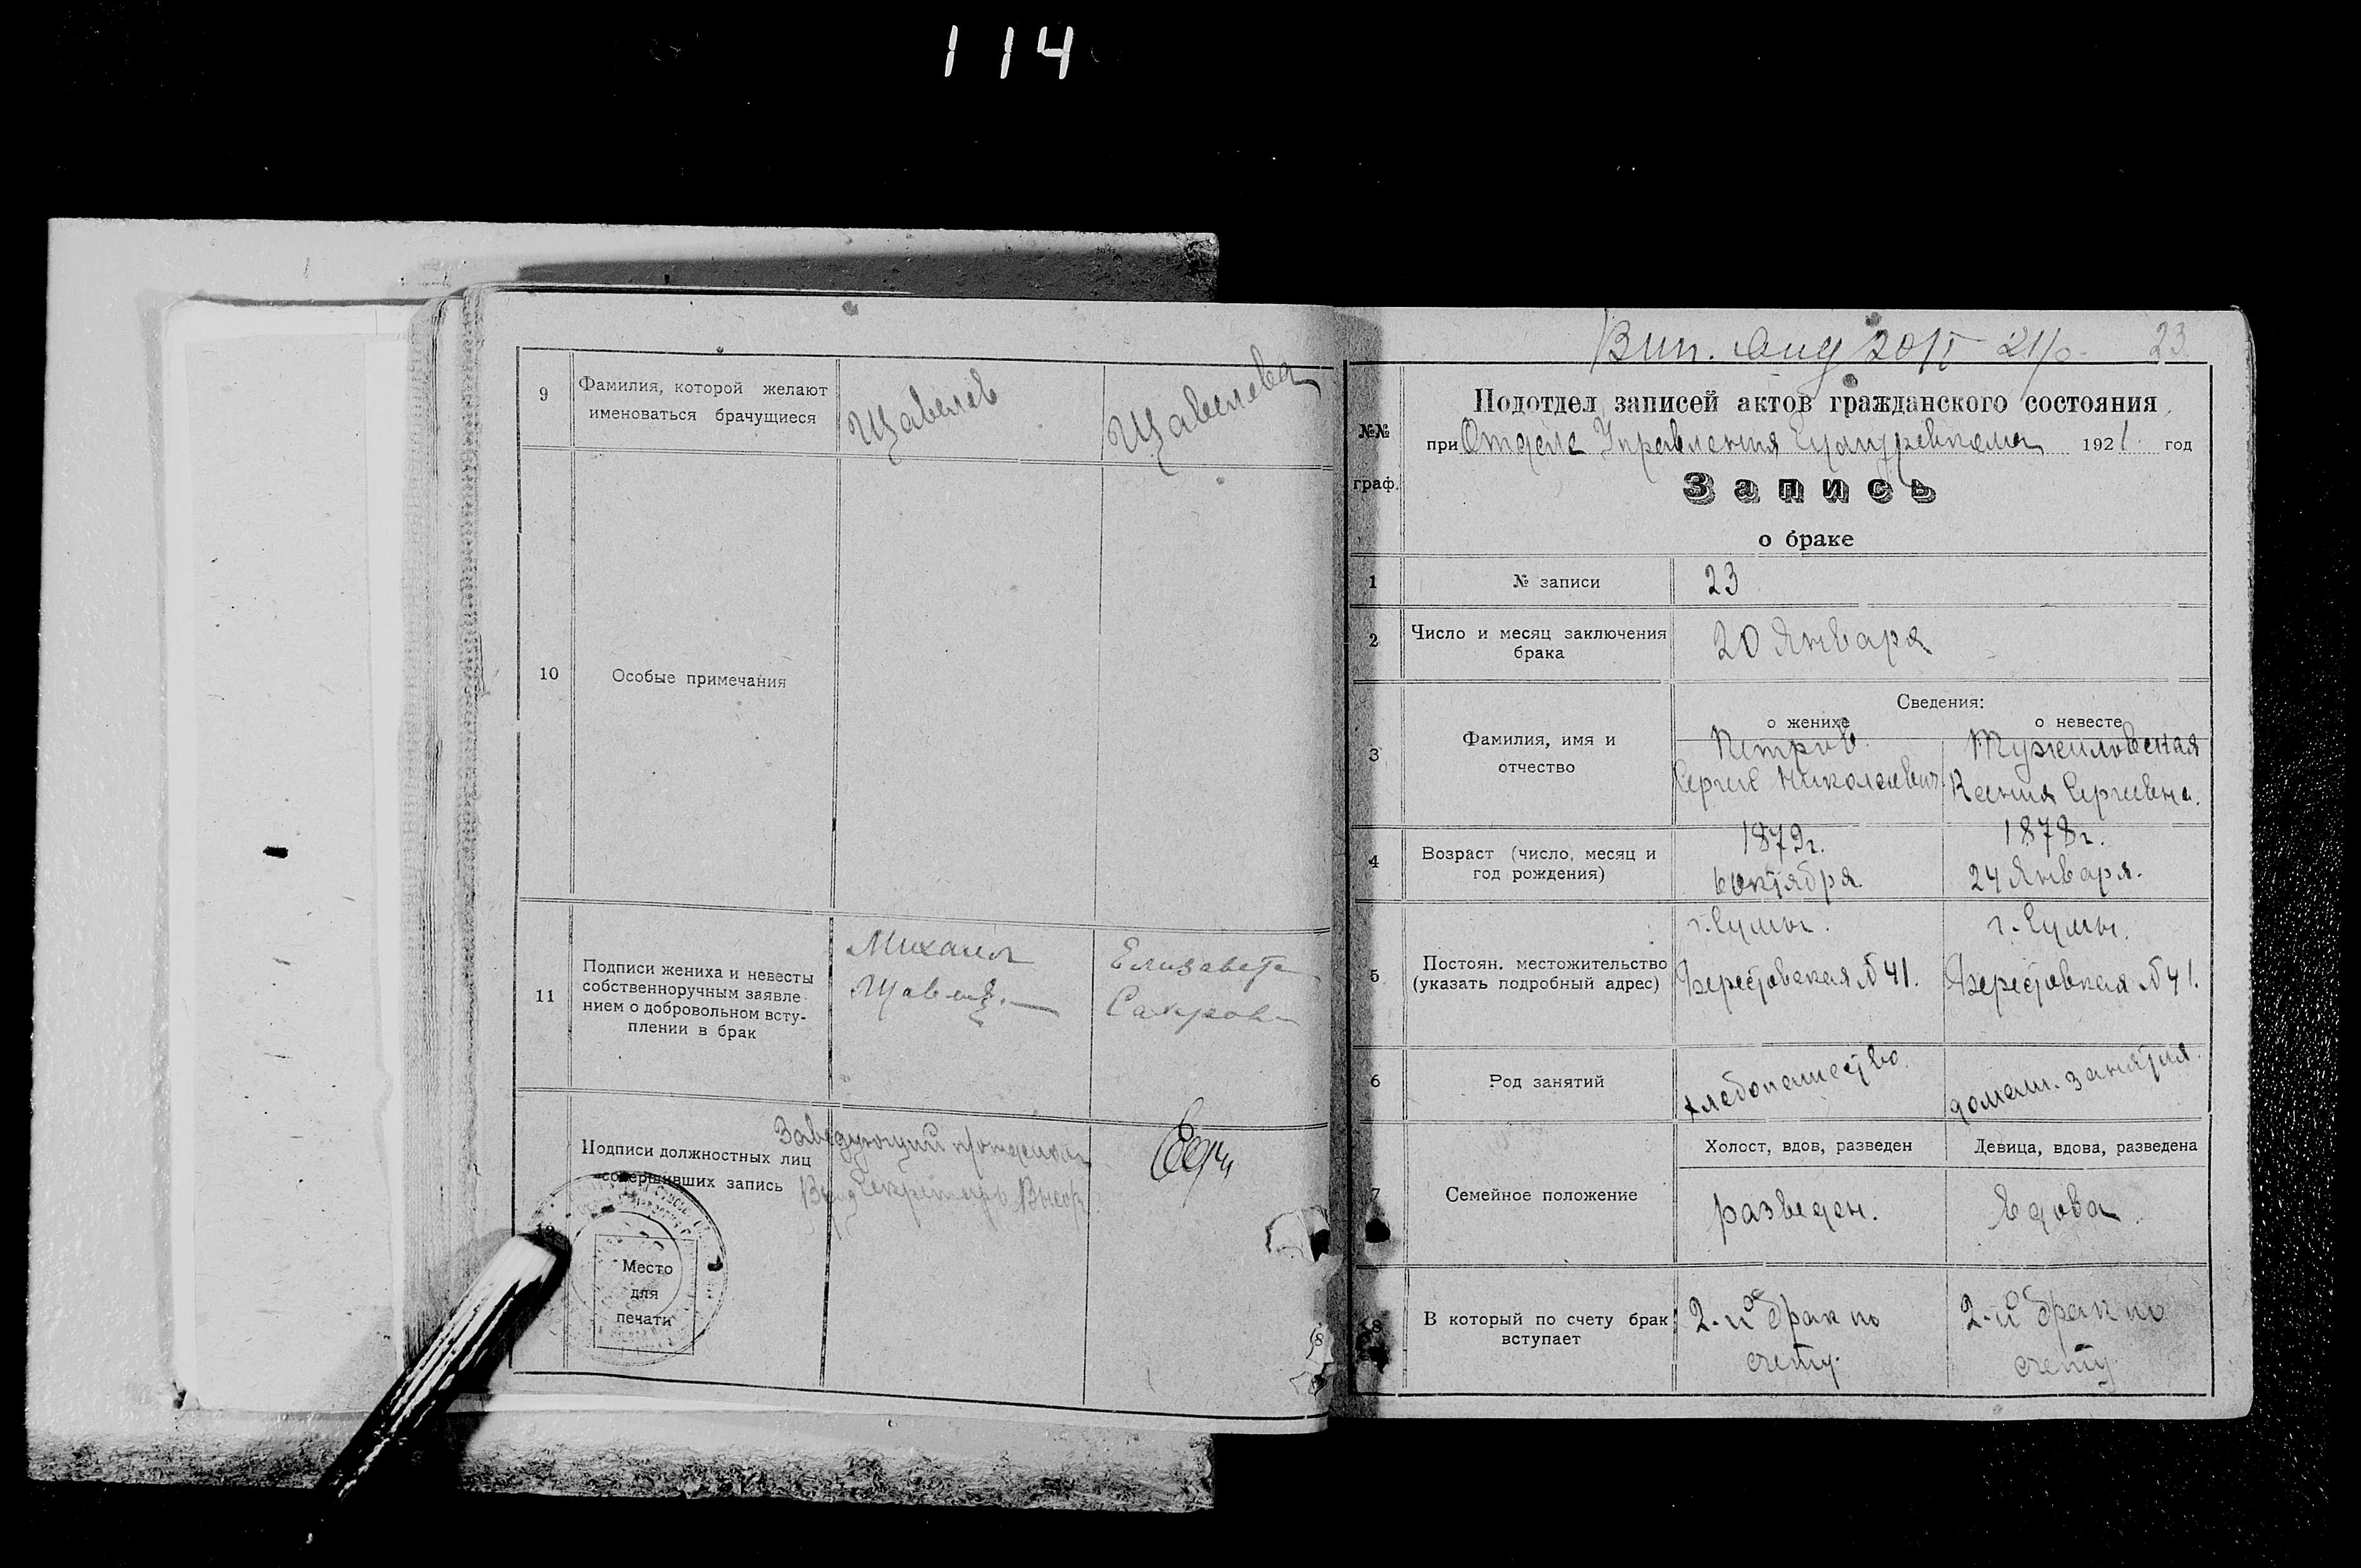 114
9
Фамилия, которой желают
именоваться брачущиеся
Щавелев
Щавелева
10
Особые примечания
11
Подписи жениха и невесты
собственноручным заявле-
нием о добровольном всту-
плении в брак
Михаил
Елизавета
Подписи должностных лиц
совершивших запись
Заведующий
Секретарь
Место
для
печати
23
№№
граф.
Подотдел записей актов гражданского состояния
при Отделе Управления 1921 год
Запись
о браке
1
№ записи
23
2
Число и месяц заключения
брака
20 Января
Сведения:
о женихе
о невесте
3
Фамилия, имя и
отчество
Петров
Сергей Николаевич
Тужиловская
Ксения Сергеевна.
4
Возраст (число, месяц и
год рождения)
1879г.
6 октября.
1878г.
24 Января.
5
Постоян. местожительство
(указать подробный адрес)
г. Сумы.
Берестовская № 41.
г. Сумы.
Берестовская № 41.
6
Род занятий
хлебопашество.
домаш. занятия.
7
Семейное положение
Холост, вдов, разведен
Девица, вдова, разведена
разведен.
Вдова
8
В который по счету брак
вступает
2-й брак по
счету.
2-й брак по
счету